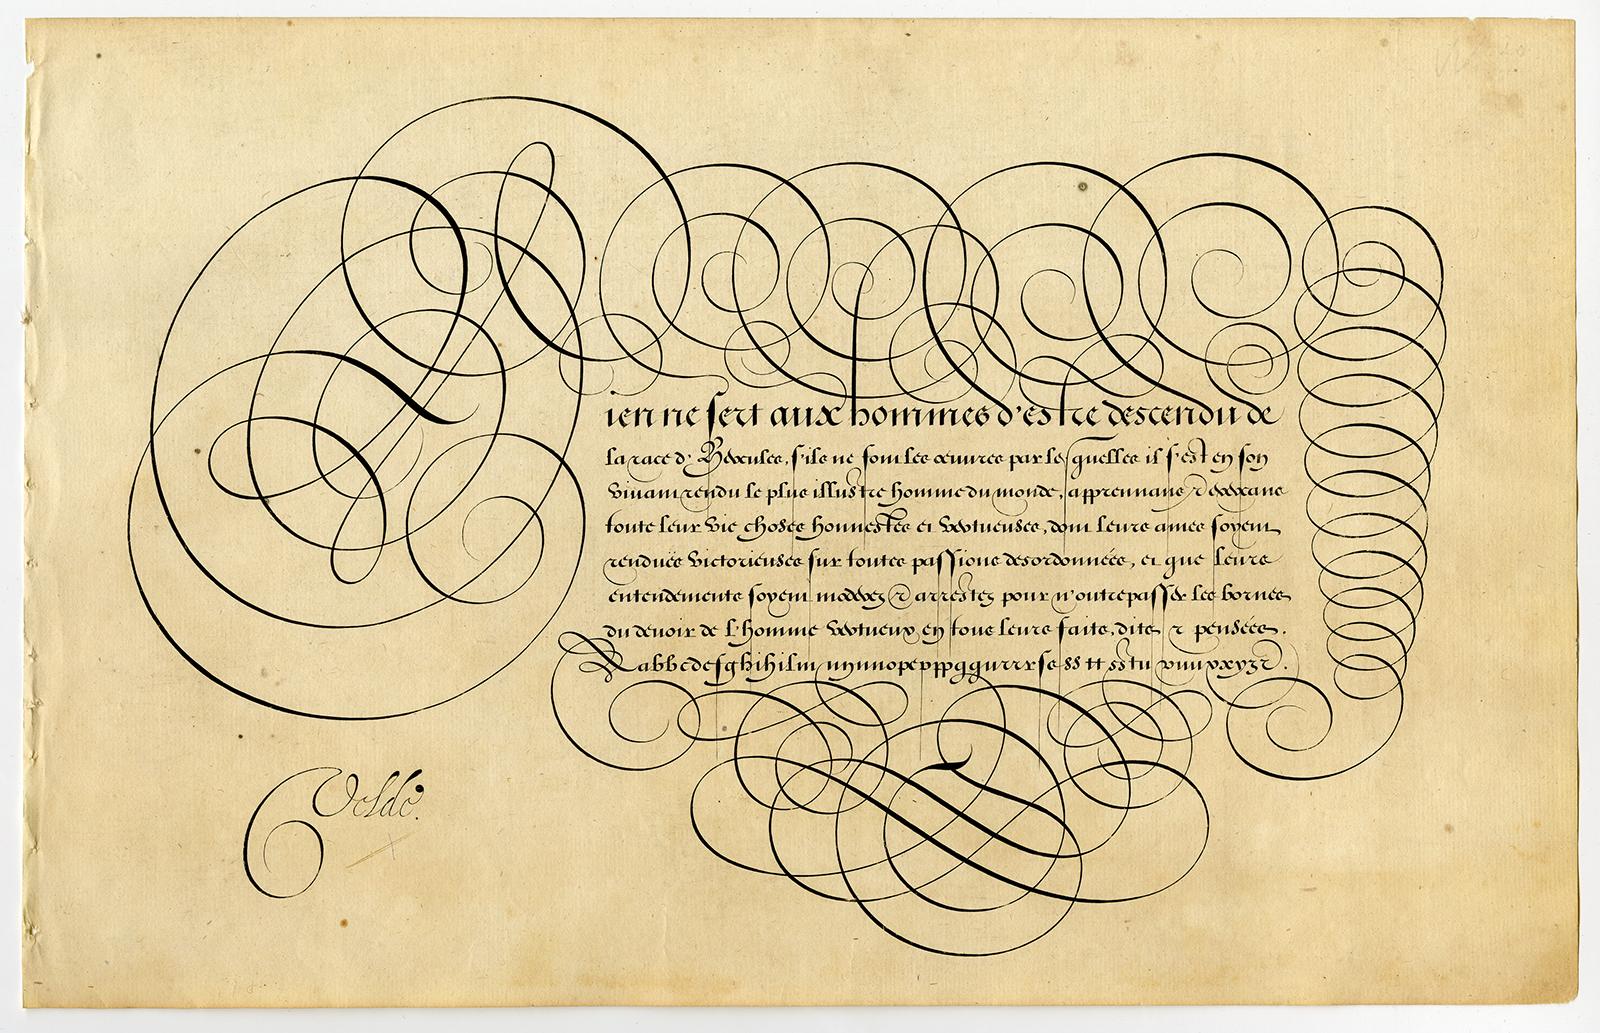 Rien ne sert aux hommes d'estre descendu de
la race d'Hercules, s'ils ne font les œuvres par lesquelles il s'est en son
vivant rendu le plus illustre homme du monde, apprennans & exerçans
toute leur vie choses honnestes et vertueuses, dont leurs ames soyent
renduës victorieuses sur toutes passions desordonnées, et que leurs
entendements soyent moderez & arrestez pour n'outrepasser les bornes
du devoir de l'homme vertueux en tous leurs faits, dits & pensées.
Velde.